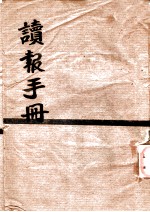 讀報手冊